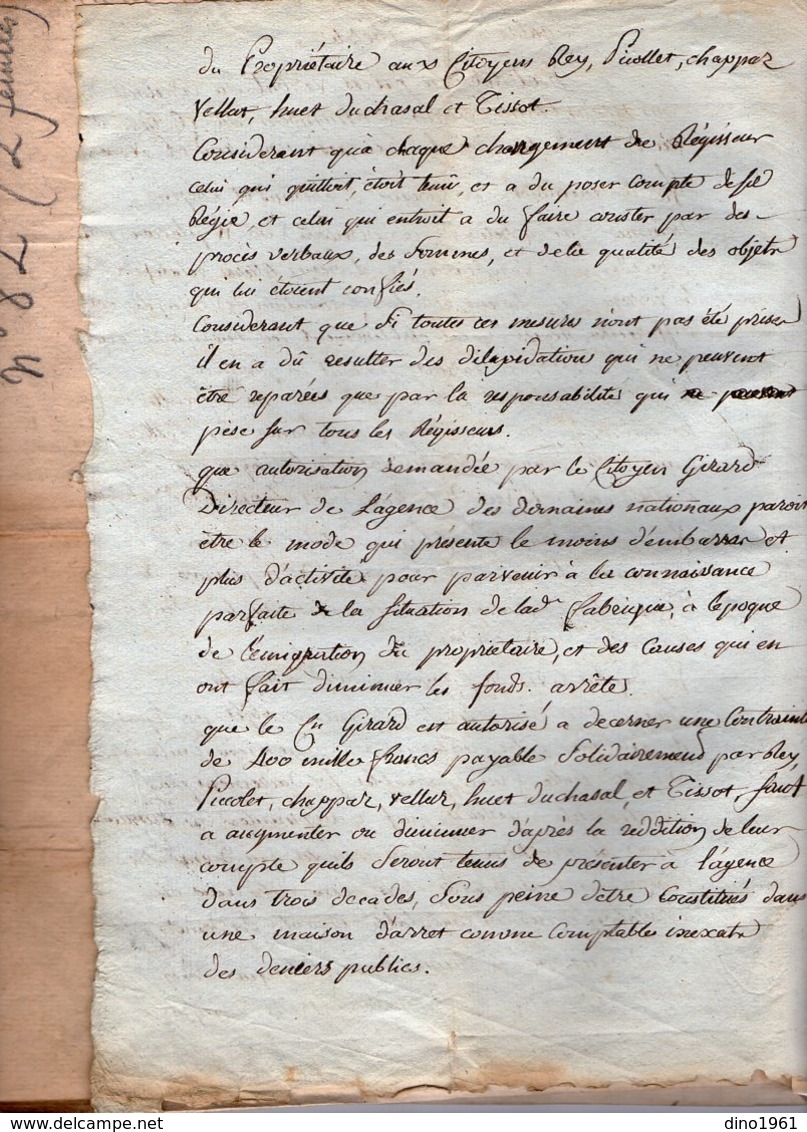 N° 82 (2 feuilles)
du Propriétaire aux Citoyens Rey, Picollet, chappaz
Vellut, huet duchasal et Tissot.
Considerant qu'a chaque changement de Régisseur
celui qui quittoit, étoit tenû, et a du poser compte de sa
Régie, et celui qui entroit a du faire conster par des
procès verbaux, des Sommes, et de la qualité des objets
qui lui étoient confiés.
Considerant que Si toutes ces mesures n'ont pas été prises
il en a dû resulter des dilapidations qui ne peuvent
être reparées que par la responsabilité qui
pése sur tous les Régisseurs.
que autorisation demandée par le Citoyen Girard
Directeur de L'agence des domaines nationaux paroit
être le mode qui présente le moins d'embarras et
plus d'activité pour parvenir à la connaissance
parfaite de la Situation de lad. fabrique, à l'epoque
de l'emigration du propriétaire, et des Causes qui en
ont fait diminuer les fonds. arrête.
que le Cn Girard est autorisé a decerner une Contrainte
de 400 mille francs payable Solidairement par Rey,
Picolet, chappaz, vellut, huet duchasal, et Tissot, sauf
a augmenter ou diminuer d'après la reddition de leur
compte qu'ils Seront tenus de présenter à l'agence
dans trois decades, Sous peine d'être Constitués dans
une maison d'arret comme Comptables inexacts
des deniers publics.
dino1961